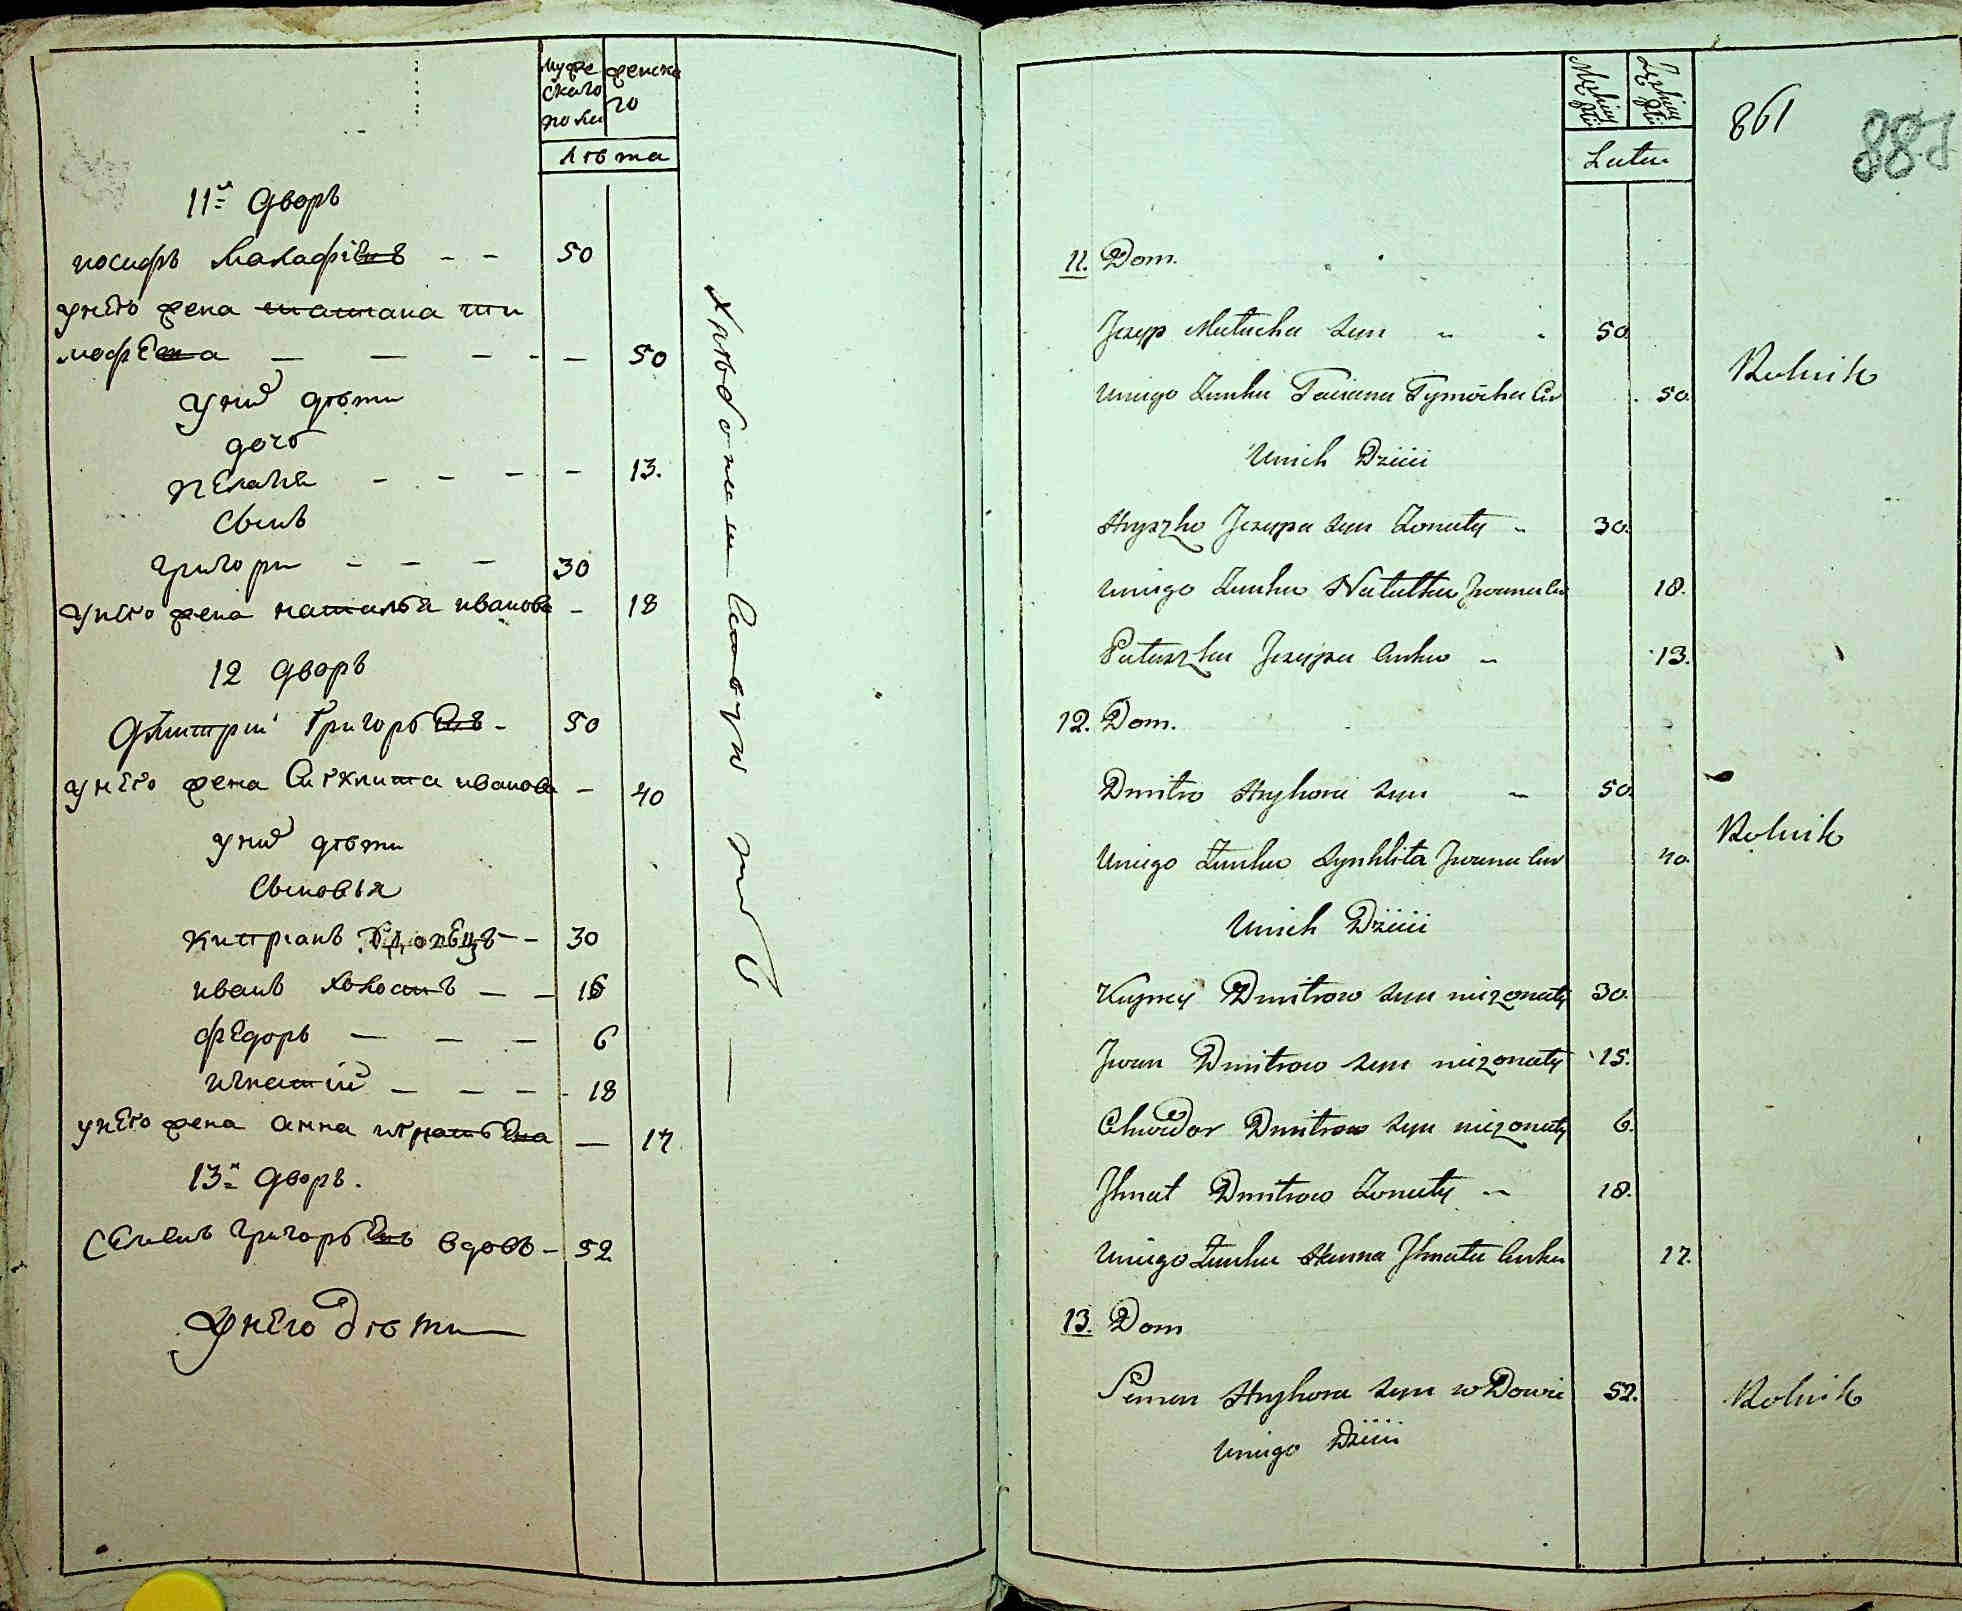 муже
скаго
полы
женска
го
лѣта
11й дворъ
иосифъ Малафiевъ - - 50
унего жена татиана ти
мофеева - - - - - 50
уних дѣти
дочь
пелагея - - - - 13.
сынъ
григори - - - 30
унего жена наталья иванова - 18
12 дворъ
Дмитрий Григорьевъ - 50
унего жена Сигклита иванова - 40
уних дѣти
Сыновья
киприанъ вдовецъ - - 30
иванъ холостъ - - 16
федоръ - - - 6
игнатий - - - - 18
унего жена анна игнатьева - 17
13й дворъ.
Семенъ Григорьевъ вдовъ - 52
Унего дѣти
хлѣбопашествуют
Męzkiey płci
Żeńskiey płci
Lata
861
881
11. Dom.
Jezyp Małacha syn 50
Rolnik
Uniego Żonka Taciana Tymocha Cur 50.
Unich Dzieci
Hryszko Jezypa syn Żonaty 30.
Uniego Żonka Natalka Jwana Cur 18.
Palaszka Jezypa Curka 13.
12. Dom.
Dmitro Hryhora syn 50.
Rolnik
Uniego Żonka Synklita Jwana Cur 40.
Unich Dzieci
Kuprey Dmitrow syn nieżonaty 30.
Jwan Dmitrow syn nieżonaty 15.
Chwedor Dmitrow syn nieżonaty 6.
Jhnat Dmitrow Żonaty 18.
Uniego Żonka Hanna Jhnata Curka 17.
13. Dom
Semen Hryhora syn wDowie 52.
Rolnik
Uniego Dzieci